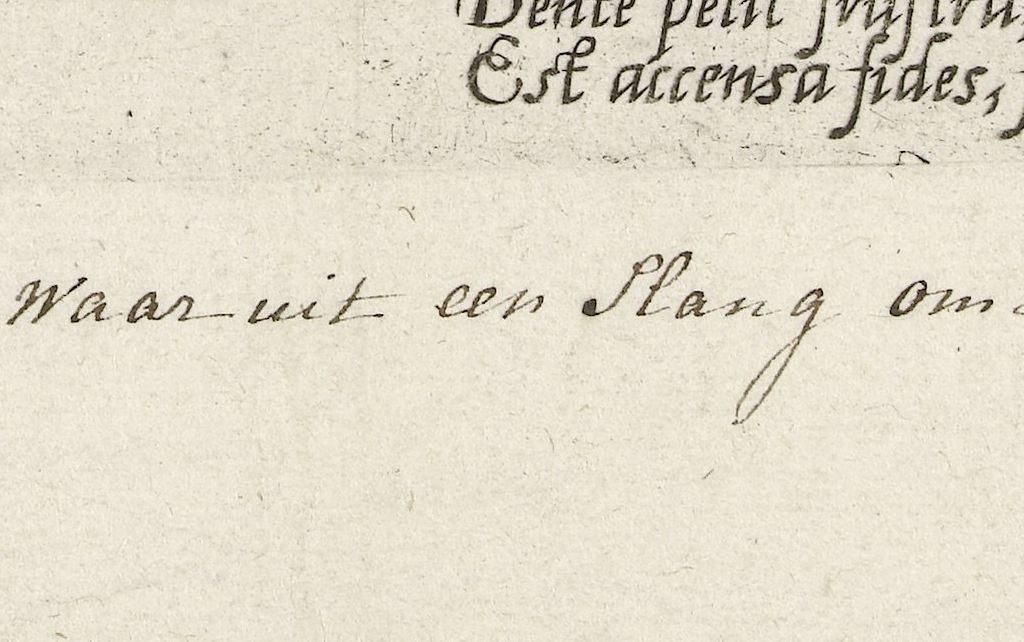 Dente petit
Est accensa fides,
Waar uit een Slang om